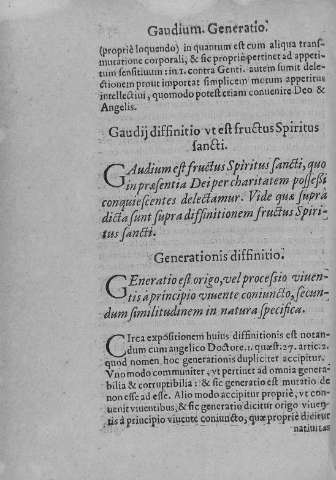 Gaudium. Generatio.
(propriè loquendo) in quantum est cum aliqua trans-
mutatione corporali, & sic propriè pertinet ad apperi-
tum sensitiuum: in 1. contra Genti. autem sumit dele-
ctionem prout importat simplicem motum apperitus
intellectiui, quomodo potest etiam conuenire Deo &
Angelis.
Gaudij diffinitio vt est fructus Spiritus
sancti.
GAudium est fructus Spiritus sancti, quo
in præsentia Dei per charitatem possessi
conquiescentes delectamur. Vide quæ supra
dicta sunt supra diffinitionem fructus Spiri-
tus sancti.
Generationis diffinitio.
GEneratio est origo, vel processio viuen-
tis a principio viuente coniuncto, secun-
dum similitudinem in natura specifica.
CIrca expositionem huius diffinitionis est notan-
dum cum angelico Doctore. 1. quæst. 27. artic. 2.
quod nomen hoc generationis dupliciter accipitur.
Vno modo communiter, vt pertinet ad omnia genera-
bilia & corruptibilia: & sic generatio est mutatio de
non esse ad esse. Alio modo accipitur propriè, vt con-
uenit viuentibus, & sic generatio dicitur origo viuen-
tis à principio viuente coniuncto, quæ propriè dicitur
natiuitas